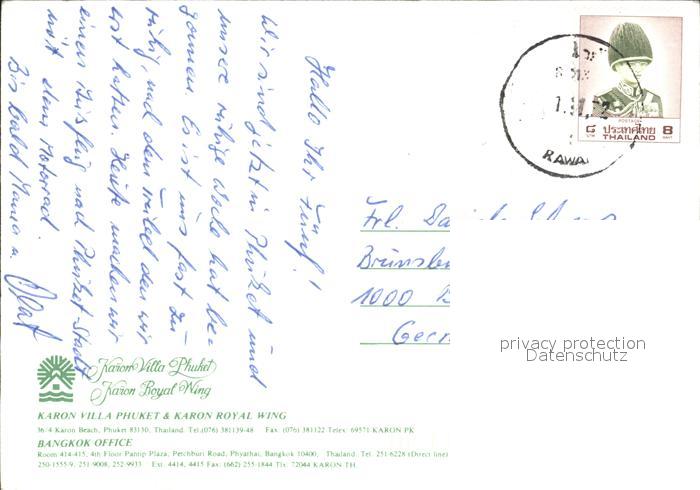 Hallo Ihr Fünf!
Wir sind jetzt in Phuket und
unsere ruhige Woche hat be-
gonnen. Es ist uns fast zu
ruhig, nach dem Trubel den wir
erst hatten. Heute machen wir
einen Ausflug nach Phuket-Stadt
mit dem Motorrad.
Bis bald Manu u. Olaf
ประเทศไทย
8
POSTAGE
THAILAND
BAHT
RAWA
Frl. Da
1000
privacy protection
Datenschutz
Karon Villa Phuket
Karon Royal Wing
KARON VILLA PHUKET & KARON ROYAL WING
36/4 Karon Beach, Phuket 83130, Thailand. Tel.(076) 381139-48 Fax: (076) 381122 Telex: 69571 KARON PK
BANGKOK OFFICE
Room 414-415, 4th Floor Pantip Plaza, Petchburi Road, Phyathai, Bangkok 10400, Thailand. Tel. 251-6228 (Direct line)
250-1555-9, 251-9008, 252-9933 Ext. 4414, 4415 Fax: (662) 255-1844 Tlx: 72044 KARON TH.